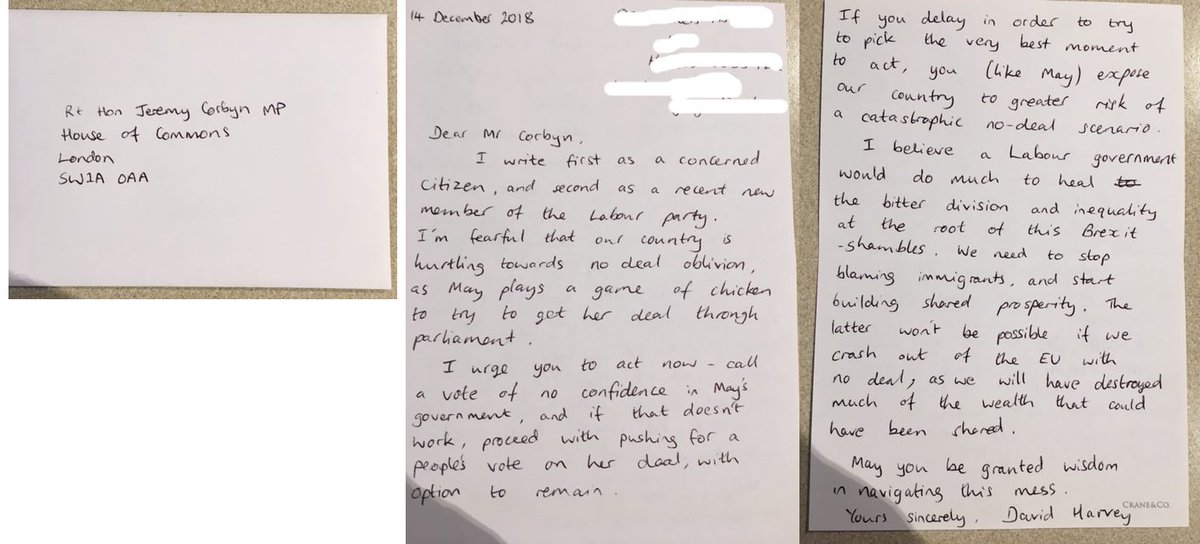 Rt Hon Jeremy Corbyn MP
House of Commons
London
SW1A 0AA
14 December 2018
Dear Mr Corbyn,
I write first as a concerned
citizen, and second as a recent new
member of the Labour party.
I'm fearful that our country is
hurtling towards no deal oblivion,
as May plays a game of chicken
to try to get her deal through
parliament.
I urge you to act now - call
a vote of no confidence in May's
government, and if that doesn't
work, proceed with pushing for a
people's vote on her deal, with
option to remain.
If you delay in order to try
to pick the very best moment
to act, you (like May) expose
our country to greater risk of
a catastrophic no-deal scenario.
I believe a Labour government
would do much to heal to
the bitter division and inequality
at the root of this Brexit
-shambles. We need to stop
blaming immigrants, and start
building shared prosperity. The
latter won't be possible if we
crash out of the EU with
no deal, as we will have destroyed
much of the wealth that could
have been shared.
May you be granted wisdom
in navigating this mess.
Yours sincerely, David Harvey
CRANE&CO.